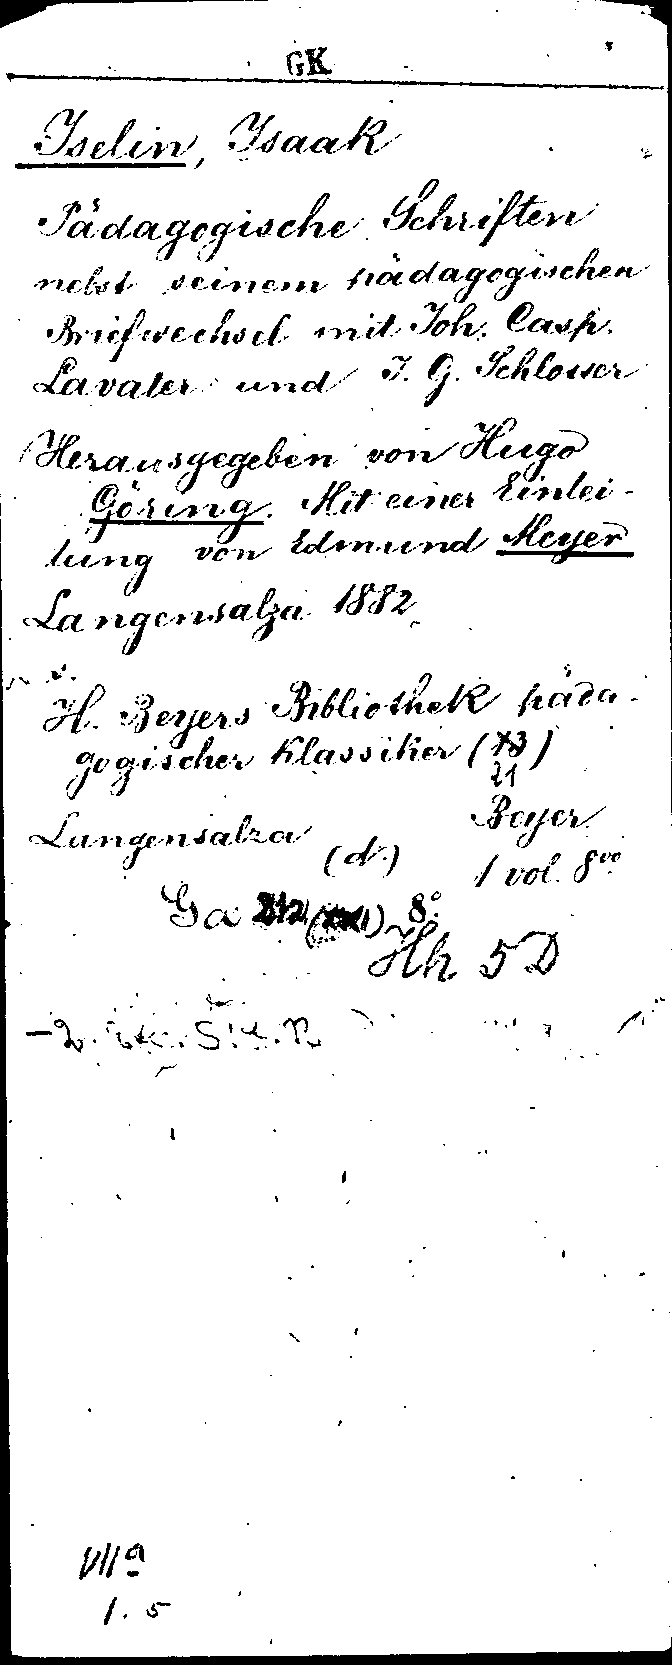 GK
Iselin, Isaak
Pädagogische Schriften
nebst seinem pädagogischen
Briefwechsel mit Joh. Casp.
Lavater und J. G. Schlosser
Herausgegeben von Hugo
Göring. Mit einer Einlei-
tung von Edmund Meyer
Langensalza 1882.
H. Beyers Bibliothek päda-
gogischer Klassiker (13)
21
Langensalza Beyer
(d.) 1 vol. 8vo
Ga 8°
Hh 5 D
VII a
1. 5